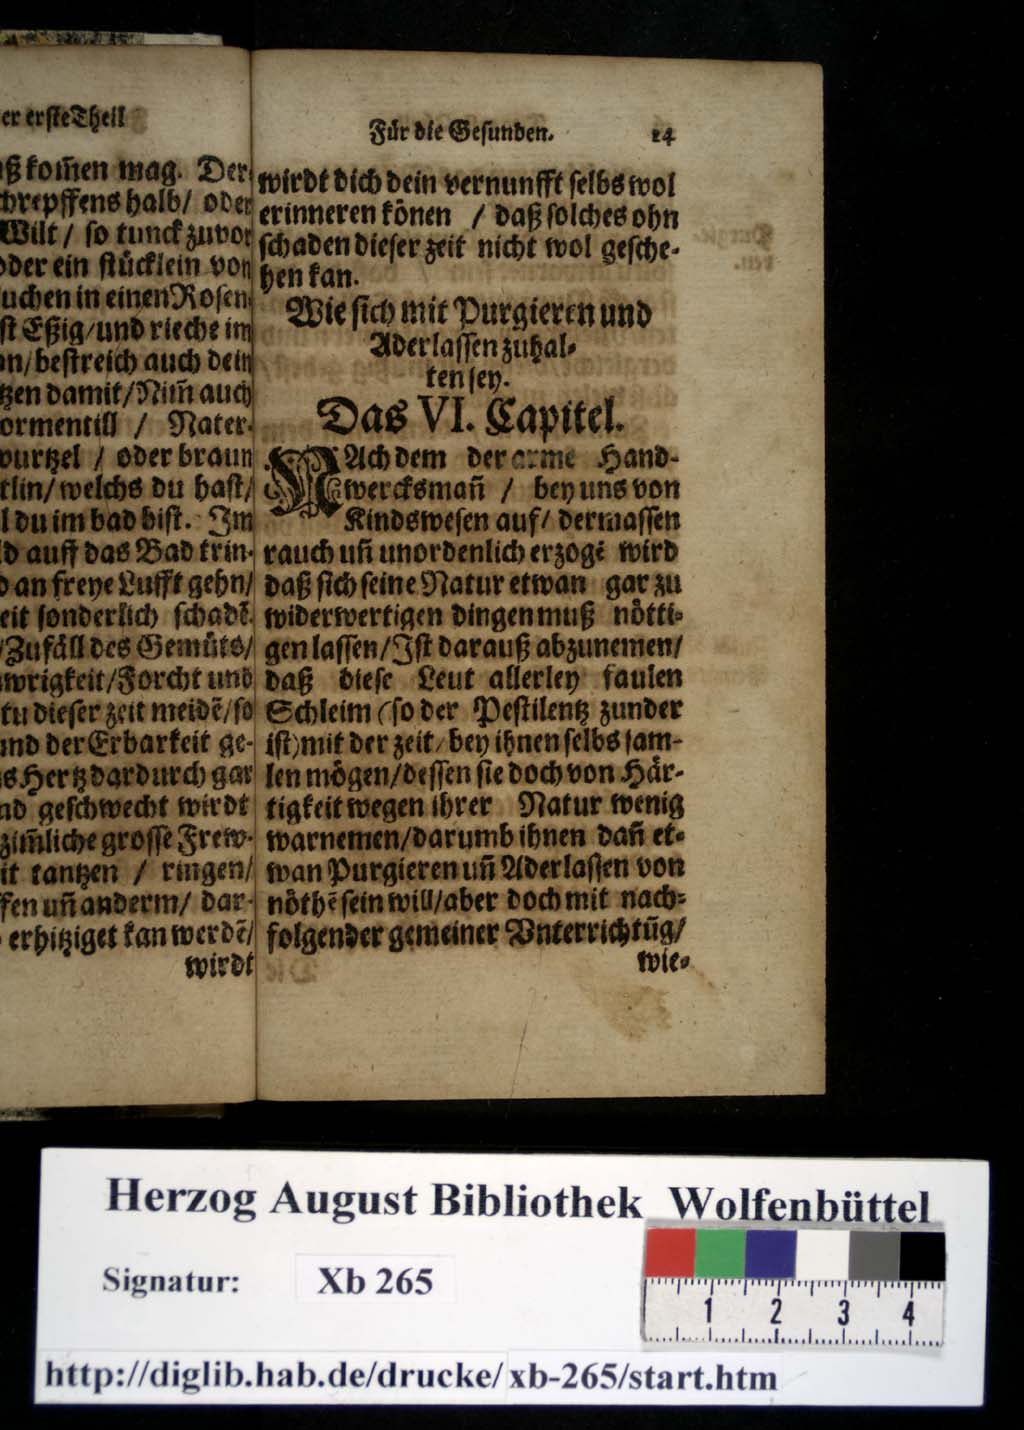 er erste Theil
ß kom̃en mag. Der
schrepffens halb/ oder
Wilt/ so tunck zuvor
oder ein stücklein von
uchen in einen Rosen
st Eßig/und rieche im
n/bestreich auch dein
tzen damit/Nim̃ auch
ormentill / Nater-
wurtzel / oder braun
tlin/welchs du hast/
l du im bad bist. Im
d auff das Bad trin-
d an freye Lufft gehn/
eit sonderlich schadẽ.
/Zufäll des Gemüts/
wrigkeit/Forcht und
tu dieser zeit meidẽ/so
und der Erbarkeit ge-
s Hertz dardurch gar
nd geschwecht wirdt
zim̃liche grosse Frew-
it tantzen / ringen/
ffen uñ anderm/ dar-
erhitziget kan werdẽ/
wirdt
Für die Gesunden. 14
wirdt dich dein vernunfft selbs wol
erinneren könen / daß solches ohn
schaden dieser zeit nicht wol gesche-
hen kan.
Wie sich mit Purgieren und
Aderlassen zuhal-
ten sey.
Das VI. Capitel.
NAch dem der arme Hand-
wercksmañ / bey uns von
Kindswesen auf/ dermassen
rauch uñ unordenlich erzogẽ wird
daß sich seine Natur etwan gar zu
widerwertigen dingen muß nötti-
gen lassen/Ist darauß abzunemen/
daß diese Leut allerley faulen
Schleim (so der Pestilentz zunder
ist) mit der zeit/ bey ihnen selbs sam-
len mögen/dessen sie doch von Här-
tigkeit wegen ihrer Natur wenig
warnemen/darumb ihnen dañ et-
wan Purgieren uñ Aderlassen von
nöthẽ sein will/aber doch mit nach-
folgender gemeiner Vnterrichtũg/
wie-
Herzog August Bibliothek Wolfenbüttel
Signatur: Xb 265
1 2 3 4
http://diglib.hab.de/drucke/xb-265/start.htm